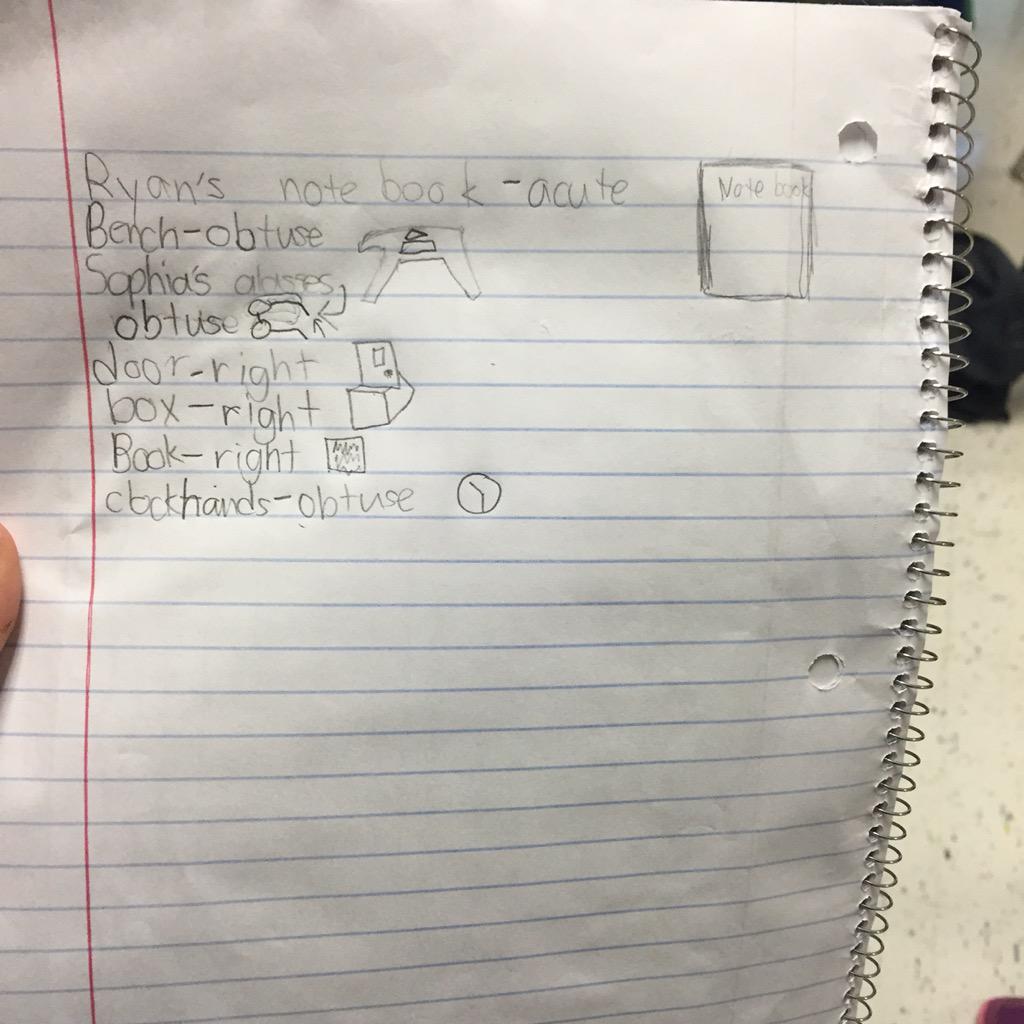 Ryan's note book - acute
Note book
Bench-obtuse
Sophia's glasses,
obtuse
door-right
box-right
Book-right
clockhands-obtuse